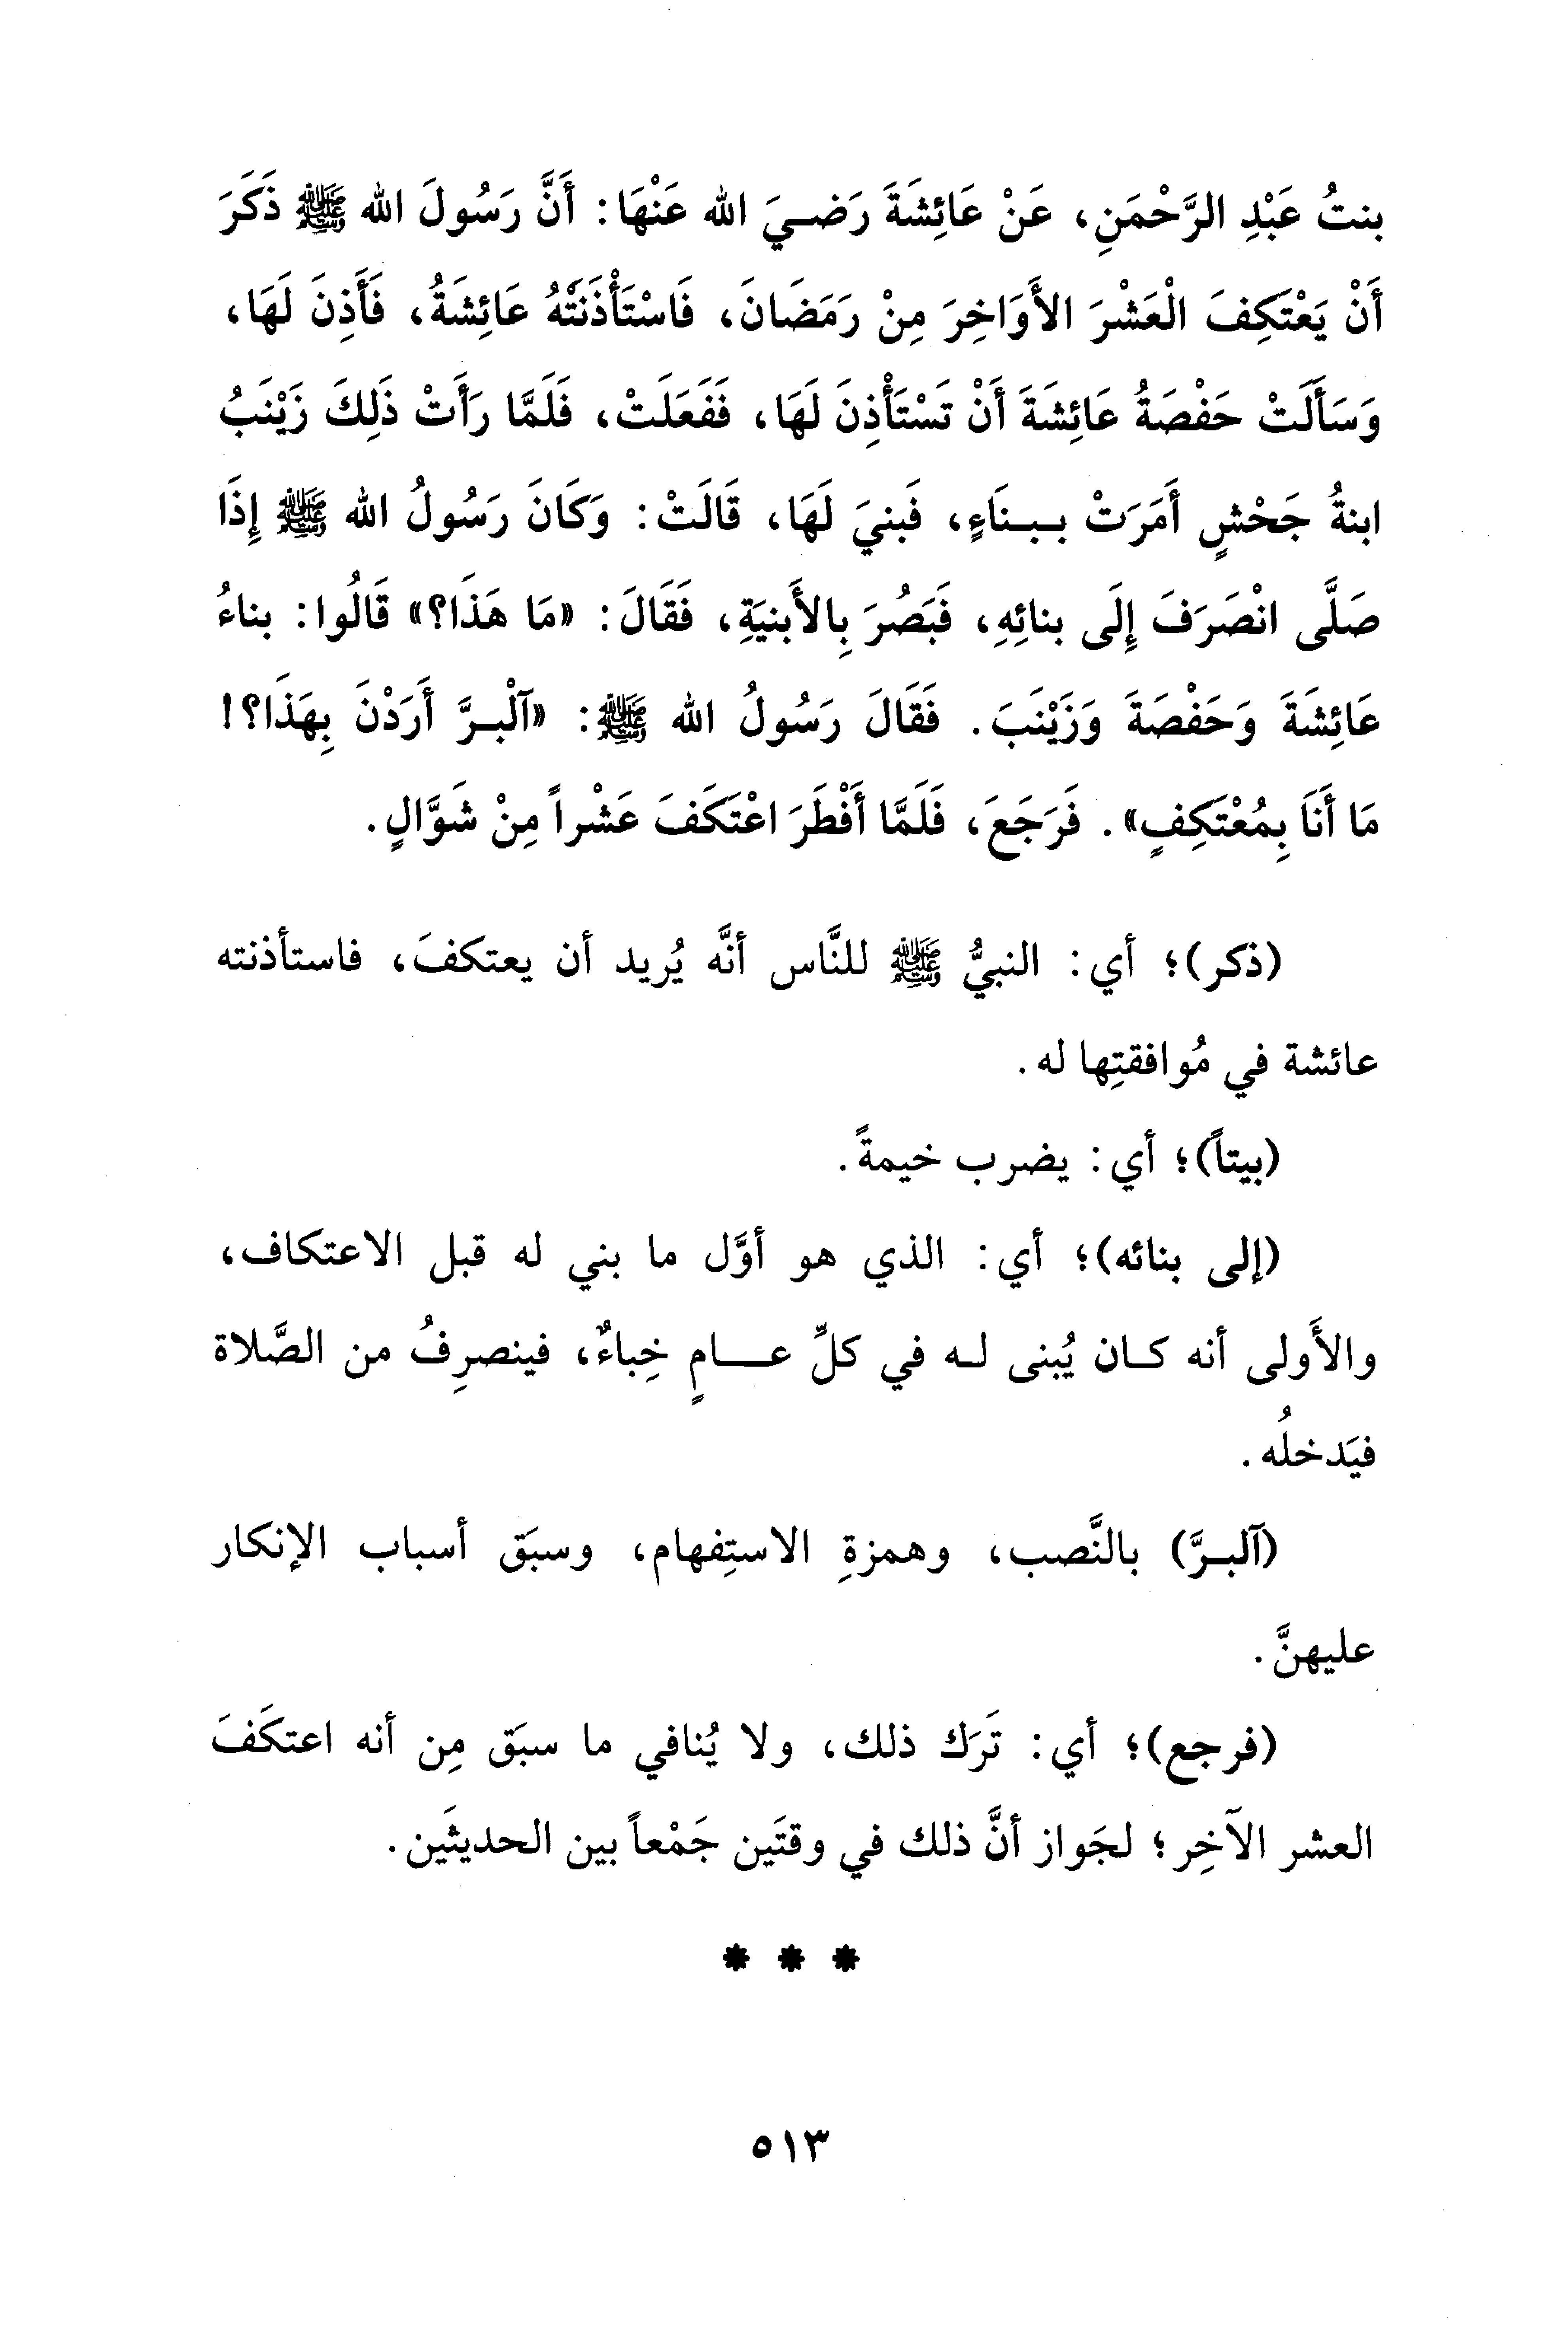 بنتُ عَبْدِ الرَّحْمَنِ، عَنْ عَائِشَةَ رَضيَ الله عَنْهَا: أَنَّ رَسُولَ الله ﷺ ذَكَرَ
أَنْ يَعْتَكِفَ الْعَشْرَ الأَوَاخِرَ مِنْ رَمَضَانَ، فَاسْتَأْذَنَتْهُ عَائِشَةُ، فَأَذِنَ لَهَا،
وَسَأَلَتْ حَفْصَةُ عَائِشَةَ أَنْ تَسْتَأْذِنَ لَهَا، فَفَعَلَتْ، فَلَمَّا رَأَتْ ذَلِكَ زَيْنَبُ
ابنةُ جَحْشٍ أَمَرَتْ بِبنَاءٍ، فَبنيَ لَهَا، قَالَتْ: وَكَانَ رَسُولُ الله ﷺ إِذَا
صَلَّى انْصَرَفَ إِلَى بنائِهِ، فَبَصُرَ بِالأَبنيَةِ، فَقَالَ: «مَا هَذَا؟» قَالُوا: بناءُ
عَائِشَةَ وَحَفْصَةَ وَزَيْنَبَ. فَقَالَ رَسُولُ الله ﷺ: «آلْبرَّ أَرَدْنَ بِهَذَا؟!
مَا أَنَا بِمُعْتَكِفٍ». فَرَجَعَ، فَلَمَّا أَفْطَرَ اعْتَكَفَ عَشْراً مِنْ شَوَّالٍ.
(ذكر)؛ أي: النبيُّ ﷺ للنَّاس أنَّه يُريد أن يعتكفَ، فاستأذنته
عائشة في مُوافقتِها له.
(بيتاً)؛ أي: يضرب خيمةً.
(إلى بنائه)؛ أي: الذي هو أوَّل ما بني له قبل الاعتكاف،
والأَولى أنه كان يُبنى له في كلِّ عامٍ خِباءٌ، فينصرِفُ من الصَّلاة
فيَدخلُه.
(آلبرَّ) بالنَّصب، وهمزةِ الاستِفهام، وسبَق أسباب الإنكار
عليهنَّ.
(فرجع)؛ أي: تَرَك ذلك، ولا يُنافي ما سبَق مِن أنه اعتكَفَ
العشر الآخِر؛ لجَواز أنَّ ذلك في وقتَين جَمْعاً بين الحديثَين.
* * *
٥١٣